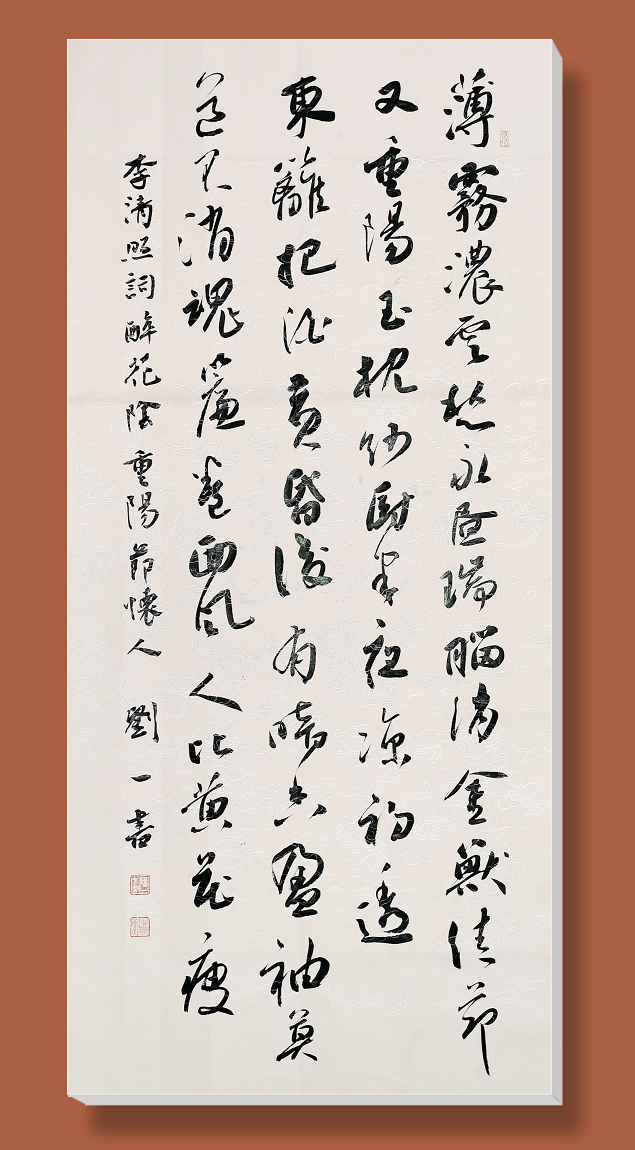 薄霧濃雲愁永晝瑞腦消金獸佳節
又重陽玉枕紗廚半夜涼初透
東籬把酒黃昏後有暗香盈袖莫
道不消魂簾卷西風人比黃花瘦
李清照詞醉花陰重陽節懷人 劉一書